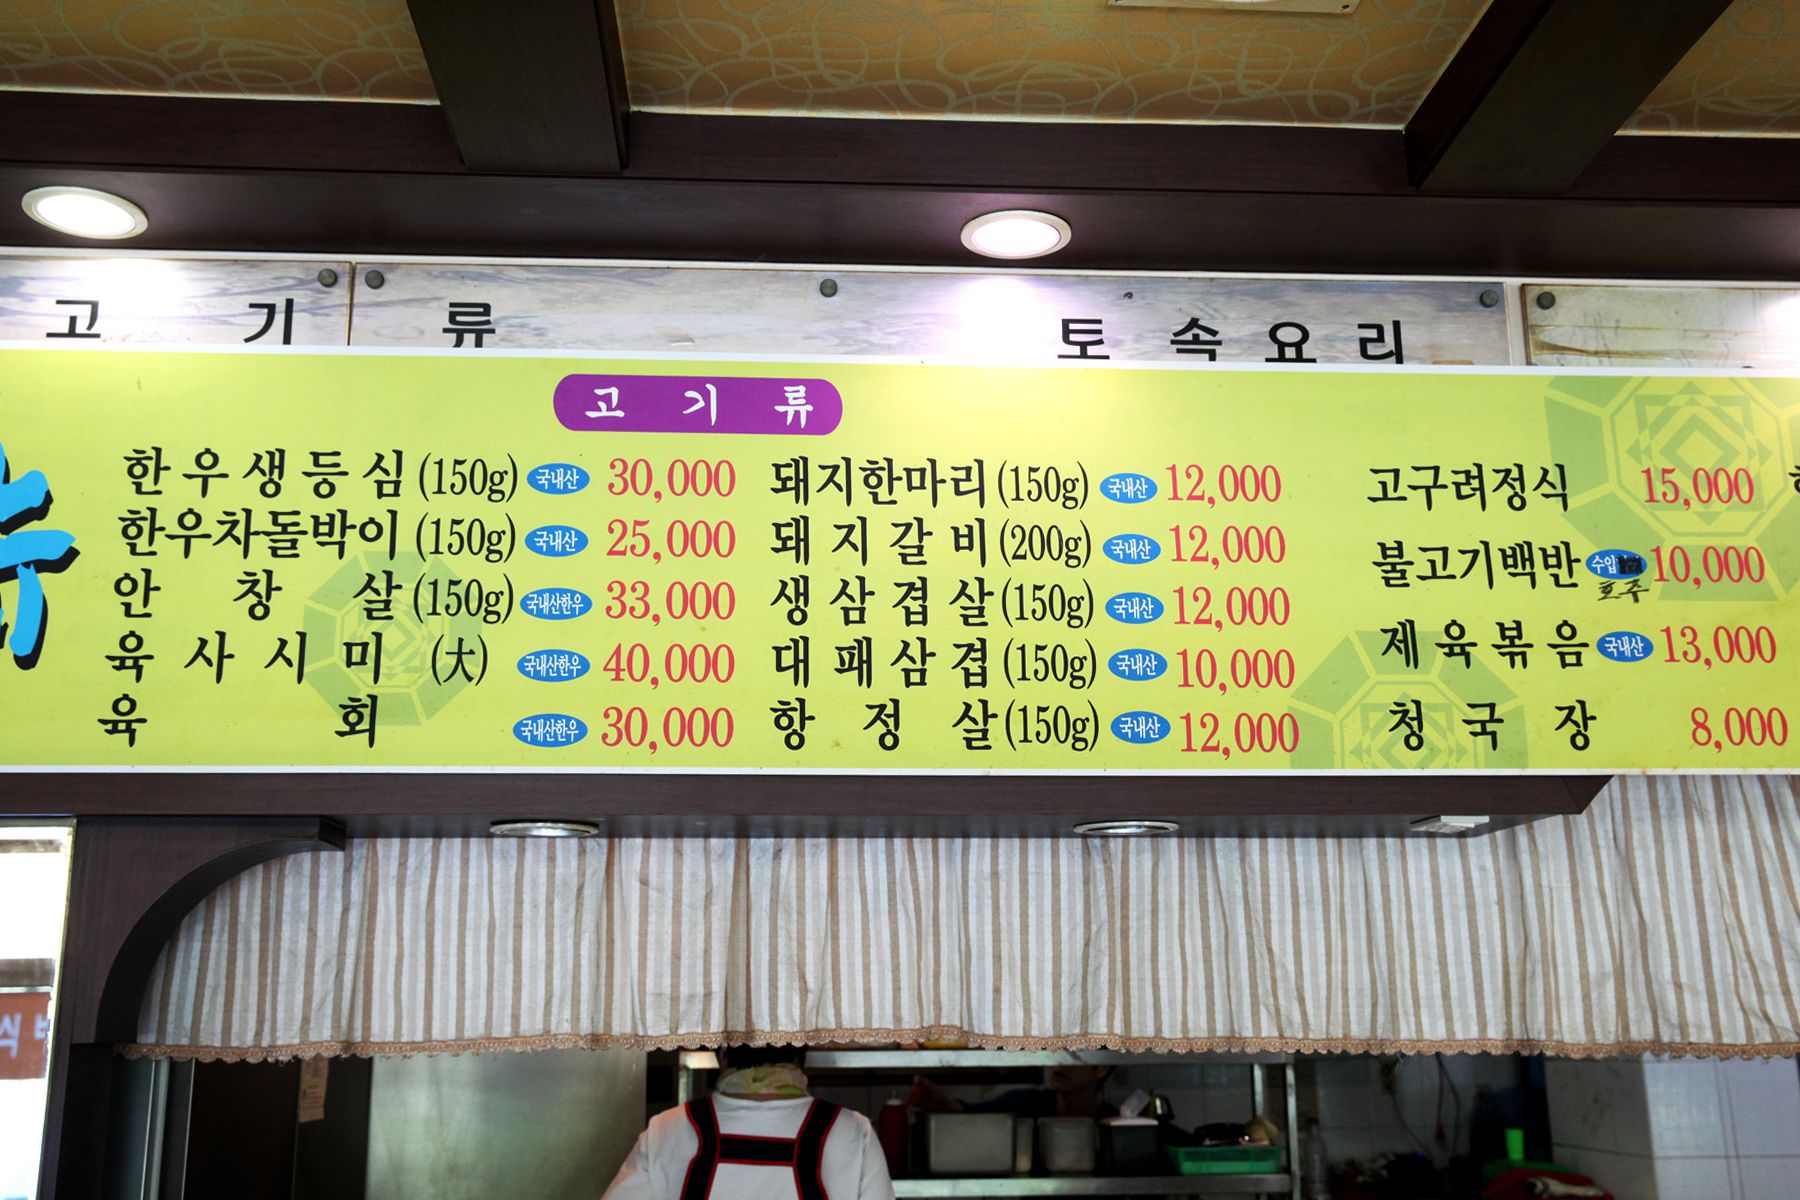 고 기 류
토속요리
고 기 류
한우생등심 (150g) 국내산 30,000
한우차돌박이 (150g) 국내산 25,000
안창살 (150g) 국내산한우 33,000
육사시미 (大) 국내산한우 40,000
육회 국내산한우 30,000
돼지한마리 (150g) 국내산 12,000
돼지갈비 (200g) 국내산 12,000
생삼겹살 (150g) 국내산 12,000
대패삼겹 (150g) 국내산 10,000
항정살 (150g) 국내산 12,000
고구려정식 15,000
불고기백반 수입 10,000
호주
제육볶음 국내산 13,000
청국장 8,000
식